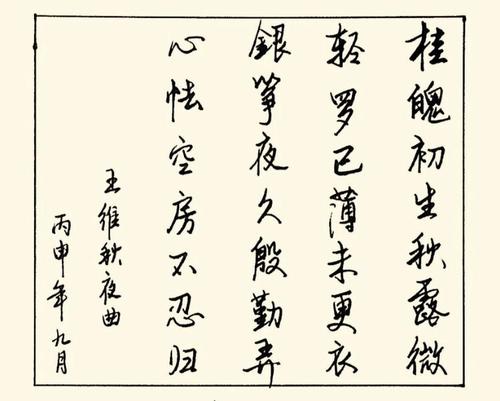 桂魄初生秋露微
轻罗已薄未更衣
銀筝夜久殷勤弄
心怯空房不忍归
王维秋夜曲
丙申年九月